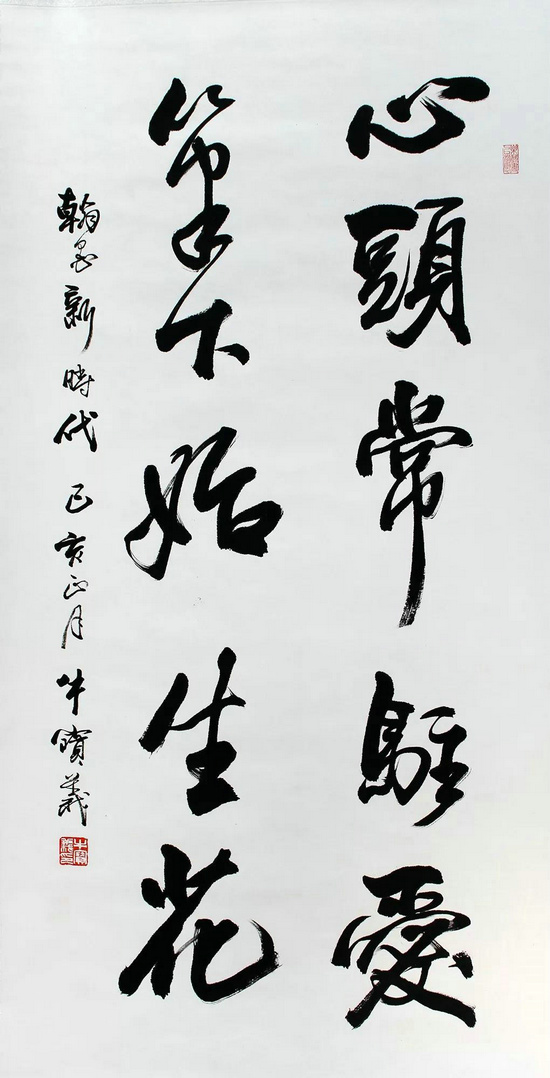 心頭常駐愛
筆下始生花
翰墨新時代 己亥正月 牛寶義